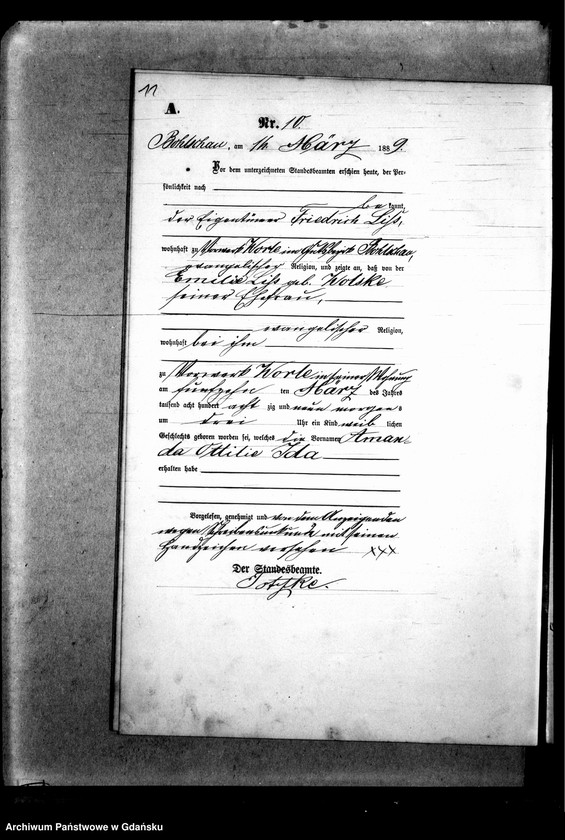 11
A.
Nr. 10.
Bohlschau, am 16 März 1889.
Vor dem unterzeichneten Standesbeamten erschien heute, der Per-
sönlichkeit nach
be kannt,
der Eigentümer Friedrich Liss,
wohnhaft zu Vorwerk Worle im Gutsbezirk Bohlschau,
evangelischer Religion, und zeigte an, daß von der
Emilie Liss geb. Kolske
seiner Ehefrau,
evangelischer Religion,
wohnhaft bei ihm
zu Vorwerk Worle in seiner Wohnung
am fünfzehn ten März des Jahres
tausend acht hundert acht zig und neun morgens
um drei Uhr ein Kind weib lichen
Geschlechts geboren worden sei, welches die Vornamen Aman-
da Ottilie Ida
erhalten habe
Vorgelesen, genehmigt und von dem Anzeigenden
wegen Schreibensunkunde mit seinen
Handzeichen versehen xxx
Der Standesbeamte.
Archiwum Państwowe w Gdańsku